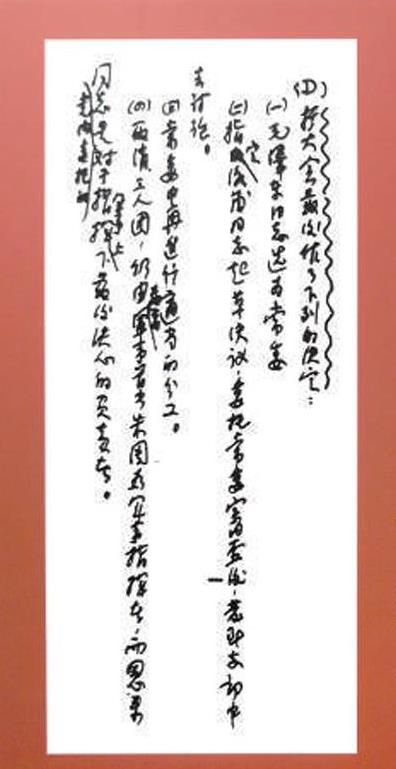 (D)扩大会最后作了下列的决定：
(一)毛泽东同志选为常委
(二)指定洛甫同志起草决议，委托常委审查后，发到支部中
去讨论。
(三)常委中再进行适当的分工。
(四)取消三人团，仍由最高军事首长朱周为军事指挥者，而恩来
同志是党内委托的对于指挥军事上下最后决心的负责者。